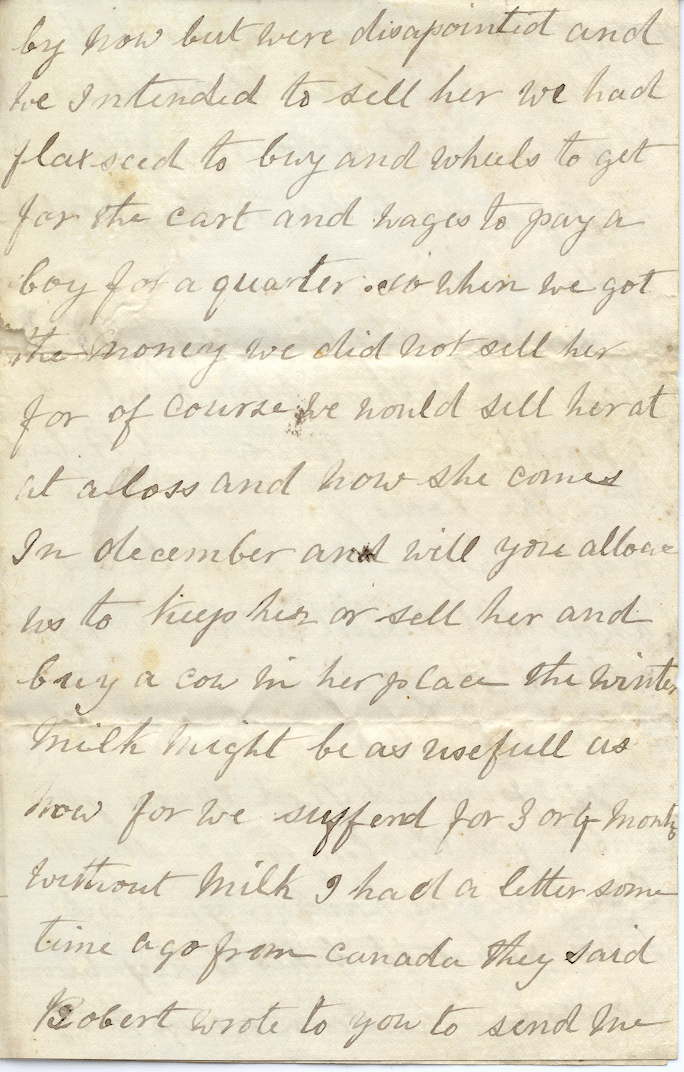 by now but were disapointed and
we Intended to sell her we had
flaxseed to buy and wheels to get
for the cart and wages to pay a
boy for a quarter. so when we got
the money we did not sell her
for of course we would sell her at
at a loss and now she comes
In december and will you allow
us to keep her or sell her and
buy a cow in her place the winter
Milk Might be as usefull as
now for we sufferd for 3 or 4 Months
without Milk I had a letter some
time ago from canada they said
Robert wrote to you to send me